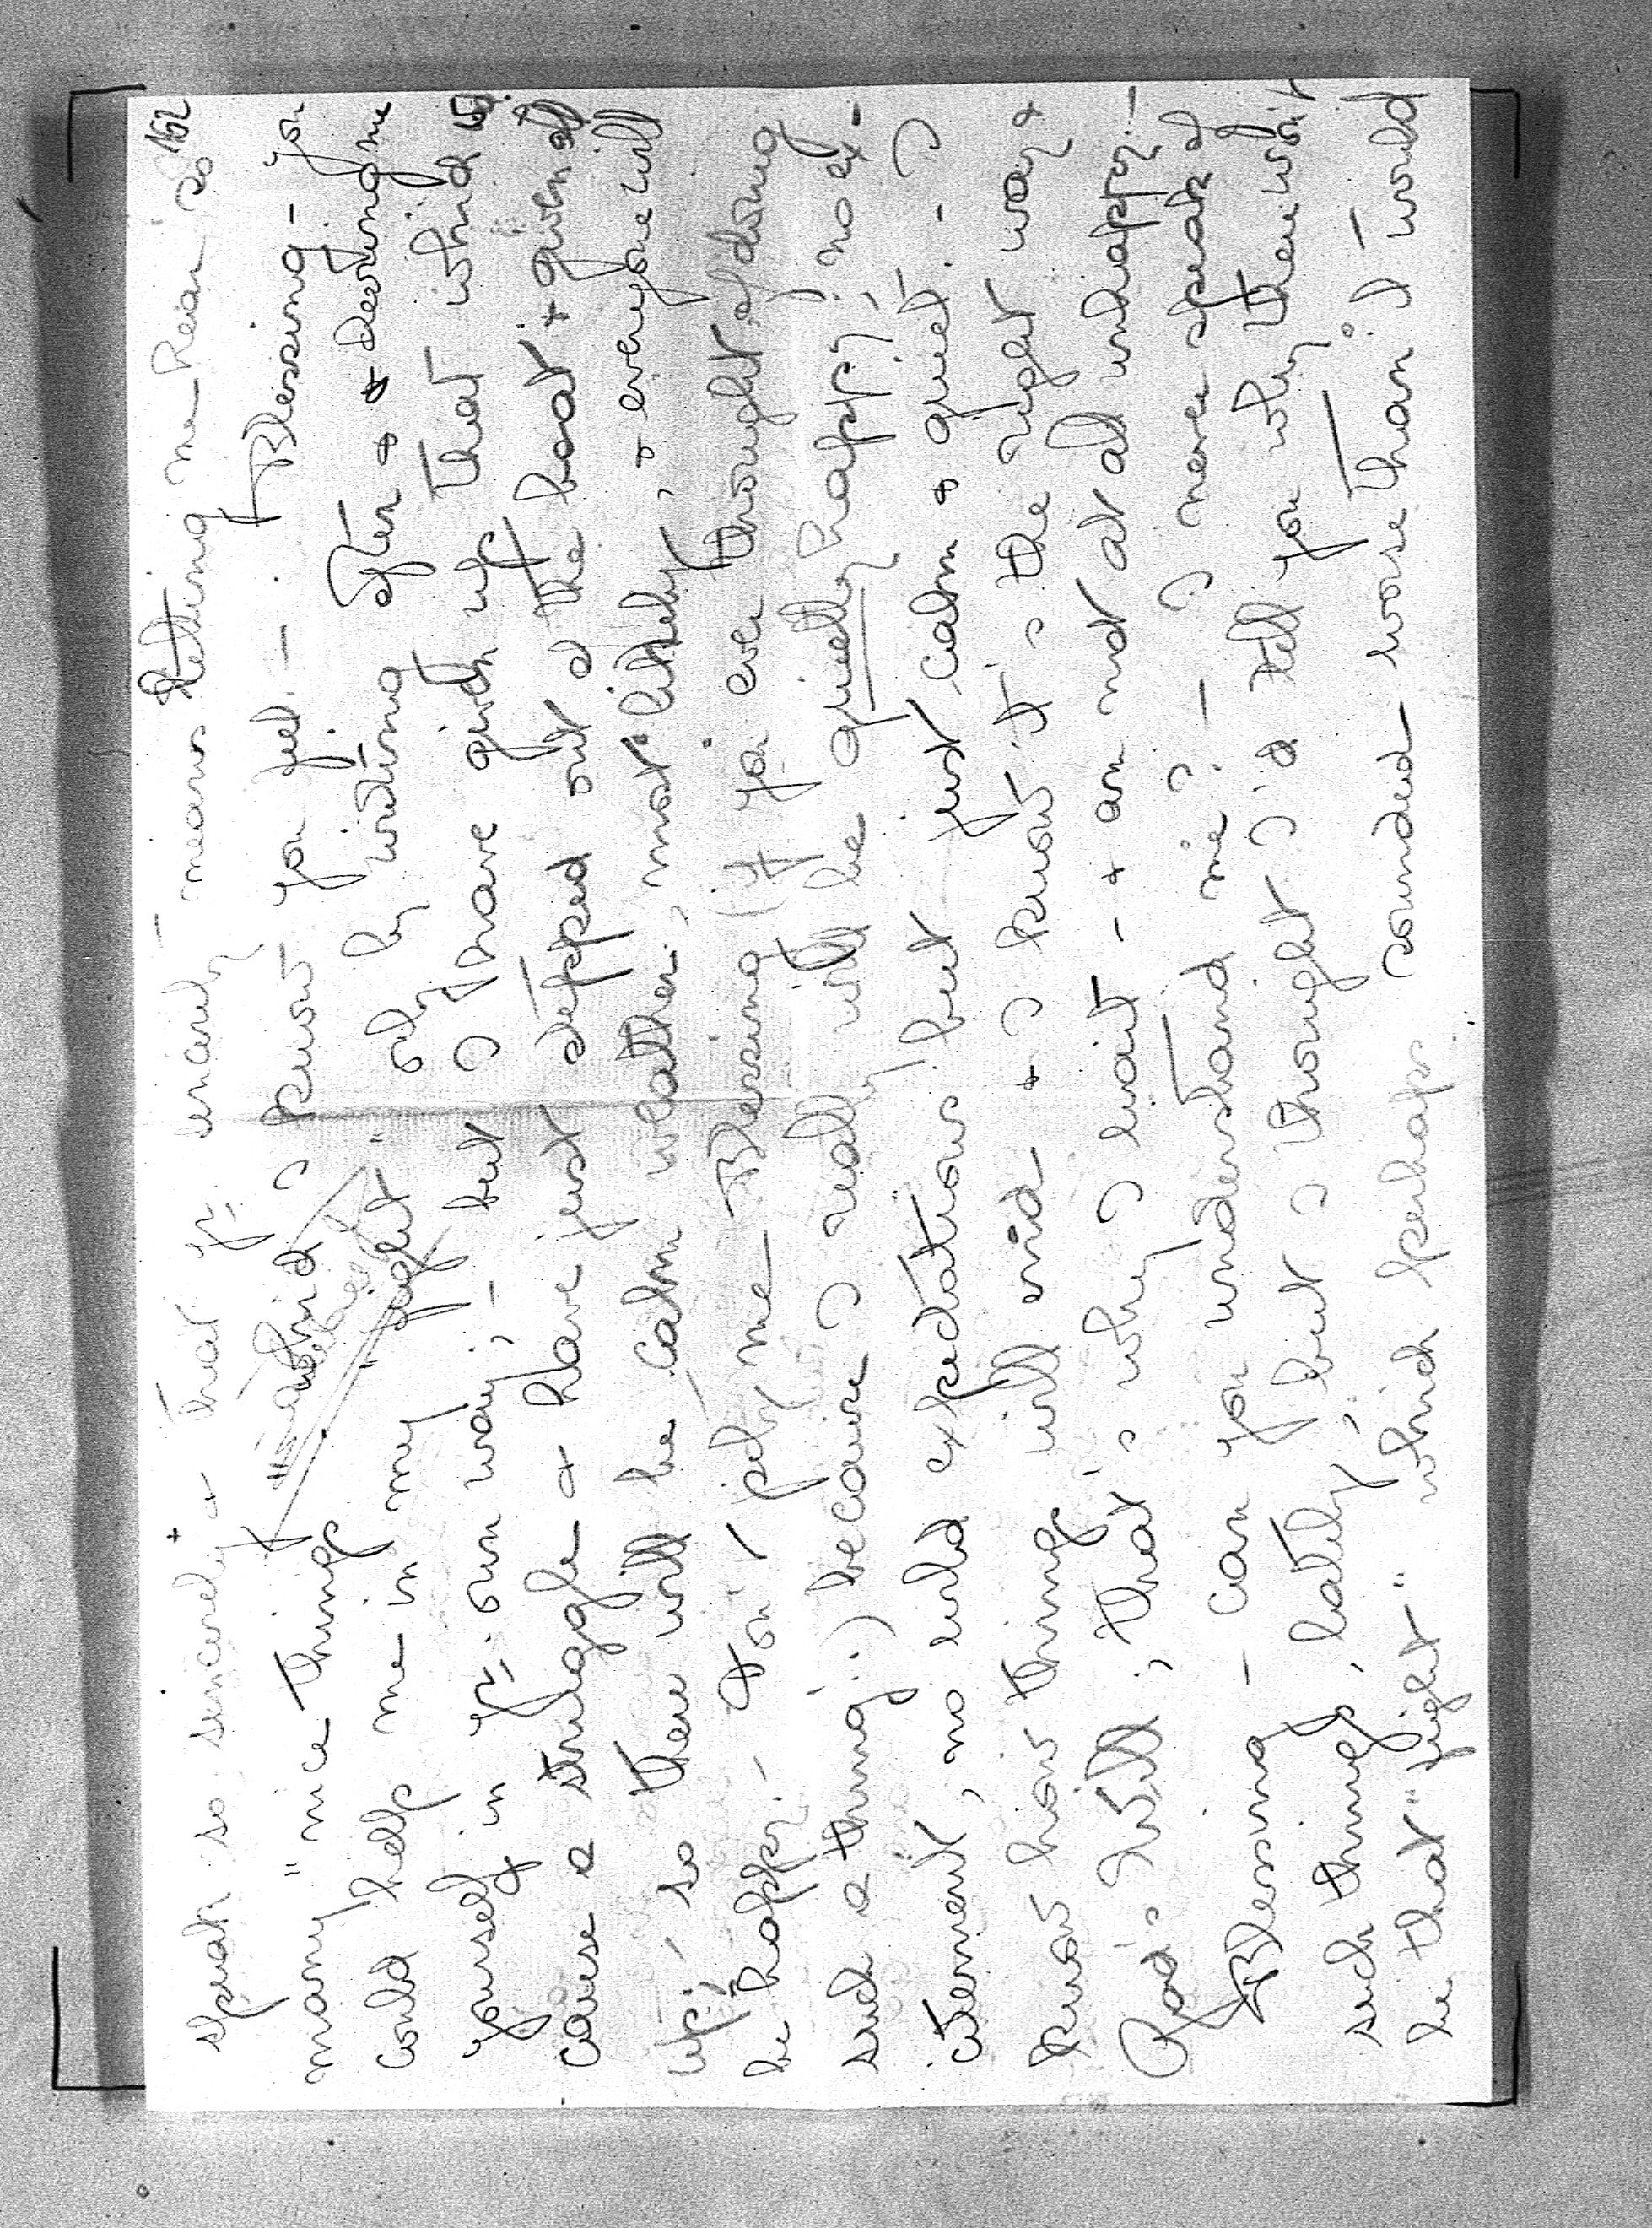 162
speak so sincerely & that yr. sincerely means letting me hear so
many "nice things which I know you feel. — Blessing — you
could help me in my "fight" only by writing often & & devoting me
yourself & in yr. own way; — but I have given up that which wd.
cause a struggle & have just stepped out of the boat & given all
up; so there will be calm weather, most likely, & everyone will
be happy. — don't pity me — Blessing (if you ever thought of doing
such a thing!) because I really will be quietly happy; no ex-
citement, no wild expectations but just calm & quiet. — I
know how things will end & I know it's the right way &
God's Will; that's why I wait — & am not at all unhappy. —
Blessing — can you understand me? — I never speak of
such things, lately, but I thought I'd tell you why there won't
be that "fight" which perhaps sounded worse than I would